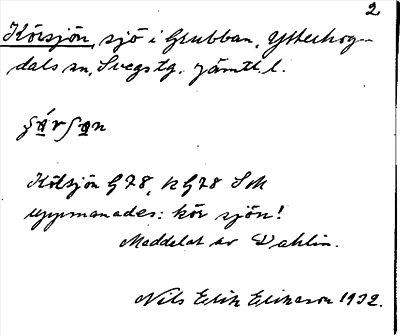 2
Körsjön, sjö i Grubban, Ytterhog-
dals sn, Svegs tg. Jämtl. l.
Kölsjön G78, k G78 SM
uppmanades: kör sjön!
Meddelat av Dahlin.
Nils Erik Eriksson 1932.